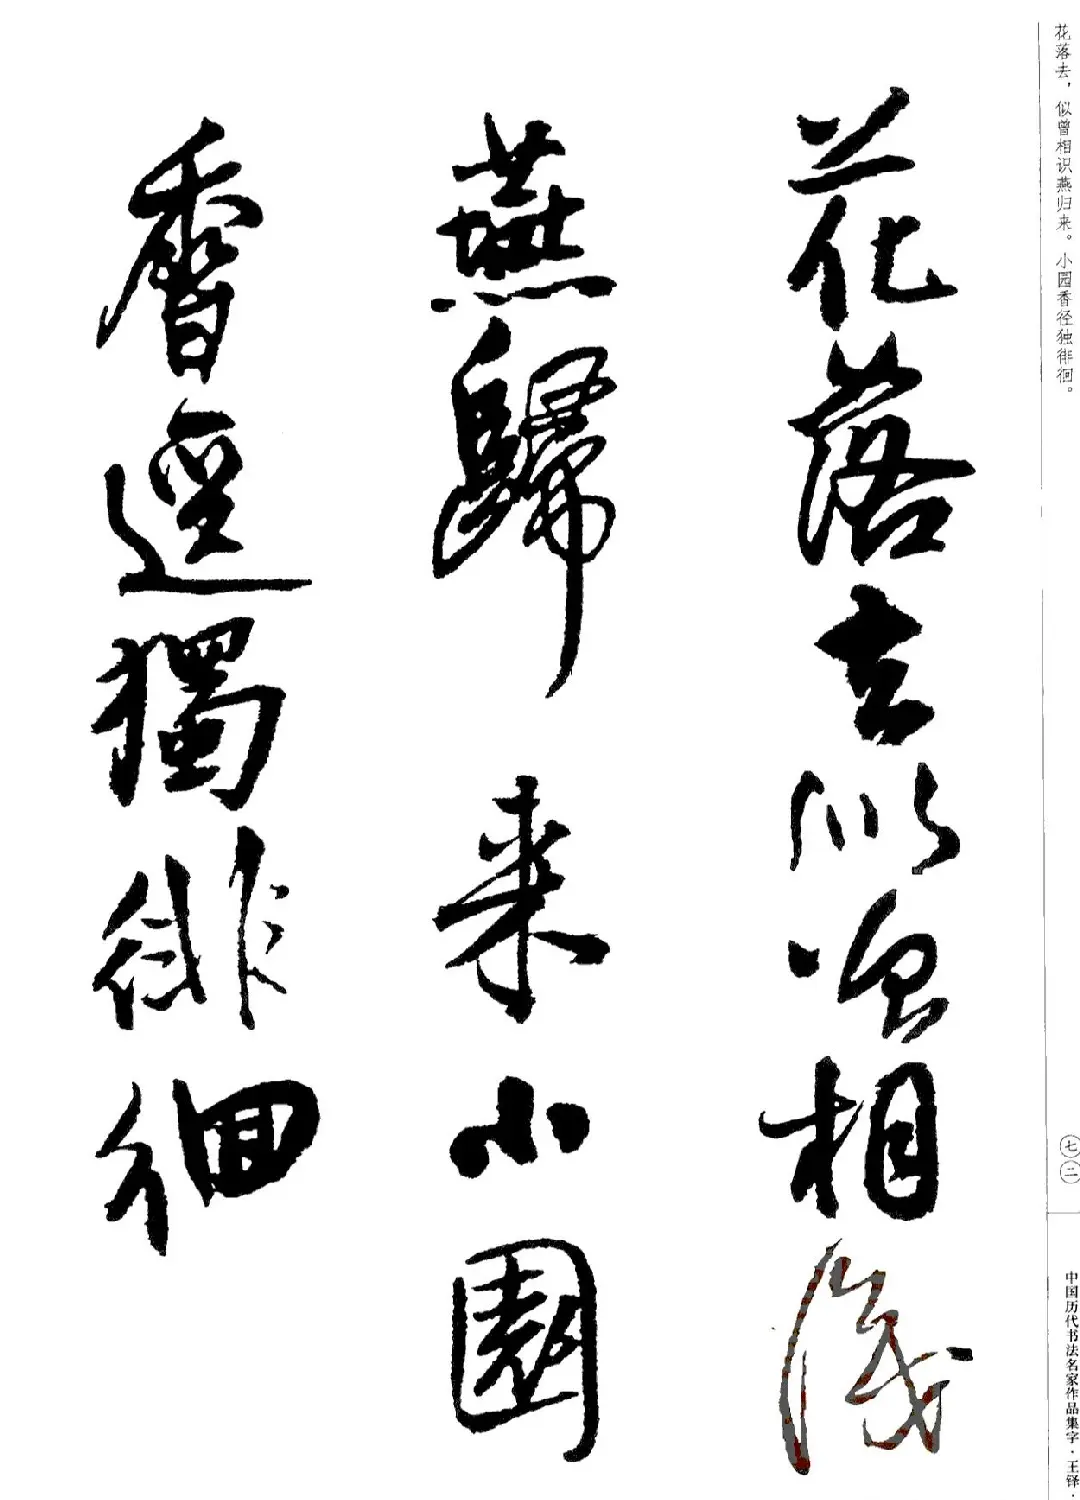 花落去，似曾相识燕归来。小园香径独徘徊。
花落去似曾相識
燕歸来小園
香逕獨徘徊
七二
中国历代书法名家作品集字·王铎·